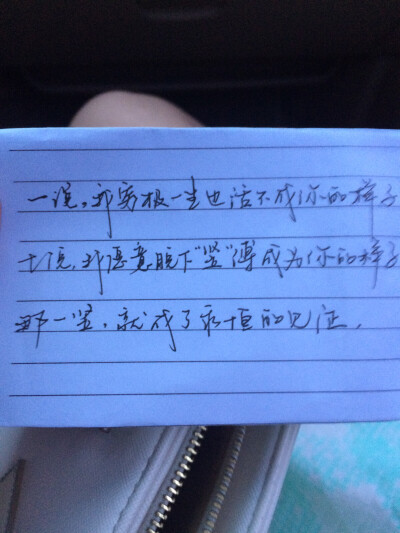 一说，我穷极一生也活不成你的样子
十说，我愿意脱下“竖”傅成为你的样子
那一竖，就成了永恒的见证.